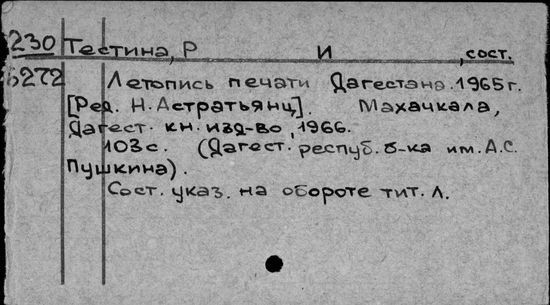 230 Тестина, Р И , сост.
6272 Летопись печати Дагестана. 1965 г.
[Ред. Н. Астратьянц]. Махачкала,
Дагест. кн. изд-во, 1966.
103 с. (Дагест. респуб. б-ка им. А.С.
Пушкина).
Сост. указ. на обороте тит. л.